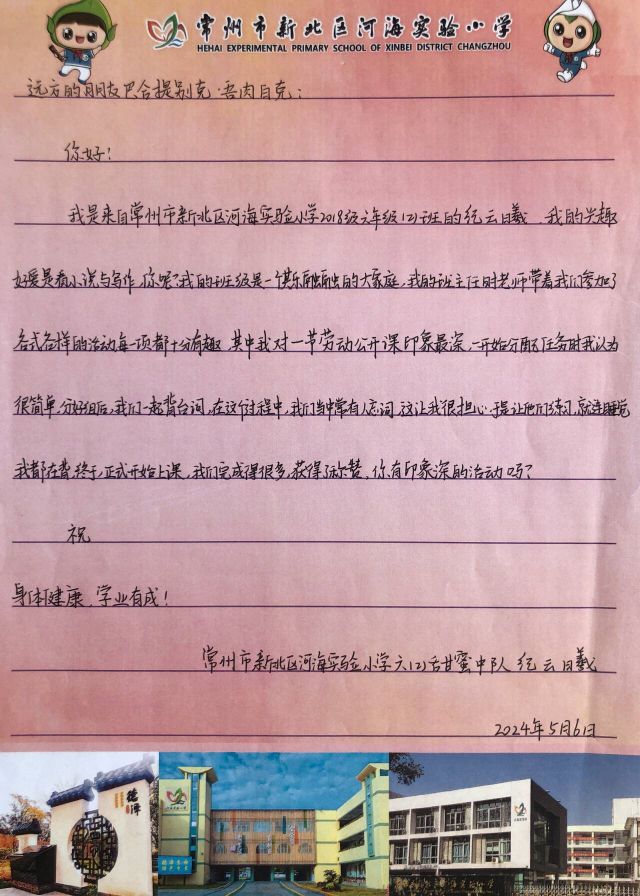 常州市新北区河海实验小学
HEHAI EXPERIMENTAL PRIMARY SCHOOL OF XINBEI DISTRICT CHANGZHOU
远方的朋友巴合提别克·吾肉自克：
你好！
我是来自常州市新北区河海实验小学2018级六年级(2)班的纪云曦，我的兴趣
好爱是看小说与写作，你呢？我的班级是一个其乐融融的大家庭，我的班主任时老师带着我们参加了
各式各样的活动每一项都十分有趣，其中我对一节劳动公开课印象最深，一开始分配任务时我认为
很简单，分好组后，我们一起背台词，在这个过程中，我们当中常有人忘词，这让我很担心，于是让他们练习，就连睡觉
我都在背，终于，正式开始上课，我们完成得很多，获得了称赞，你有印象深的活动吗？
祝
身体健康，学业有成！
常州市新北区河海实验小学六(2)甜蜜中队 纪云曦
2024年5月6日
德泽